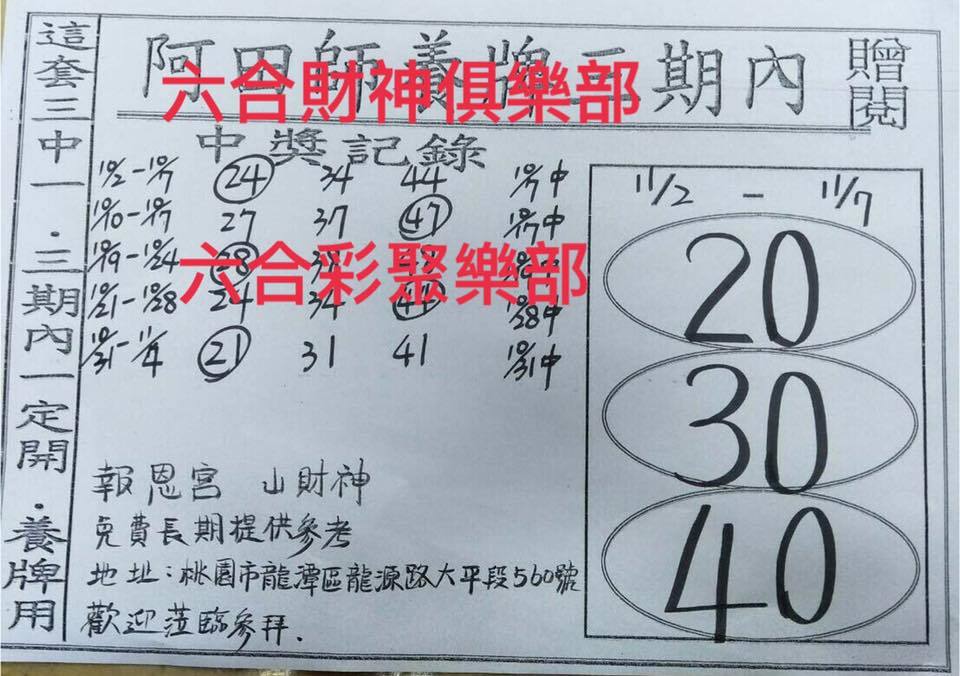 這套三中一.三期內一定開.養牌用
阿田師養牌三期內
贈閱
六合財神俱樂部
中獎記錄
10/2-10/7 24 34 44 10/7中
10/10-10/17 27 37 47 10/17中
10/19-10/24 28
六合彩聚樂部
10/21-10/28 24 34 44 10/28中
10/31-11/4 21 31 41 10/31中
報恩宮 山財神
免費長期提供參考
地址:桃園市龍潭區龍源路大平段560號
歡迎蒞臨參拜.
11/2 - 11/7
20
30
40